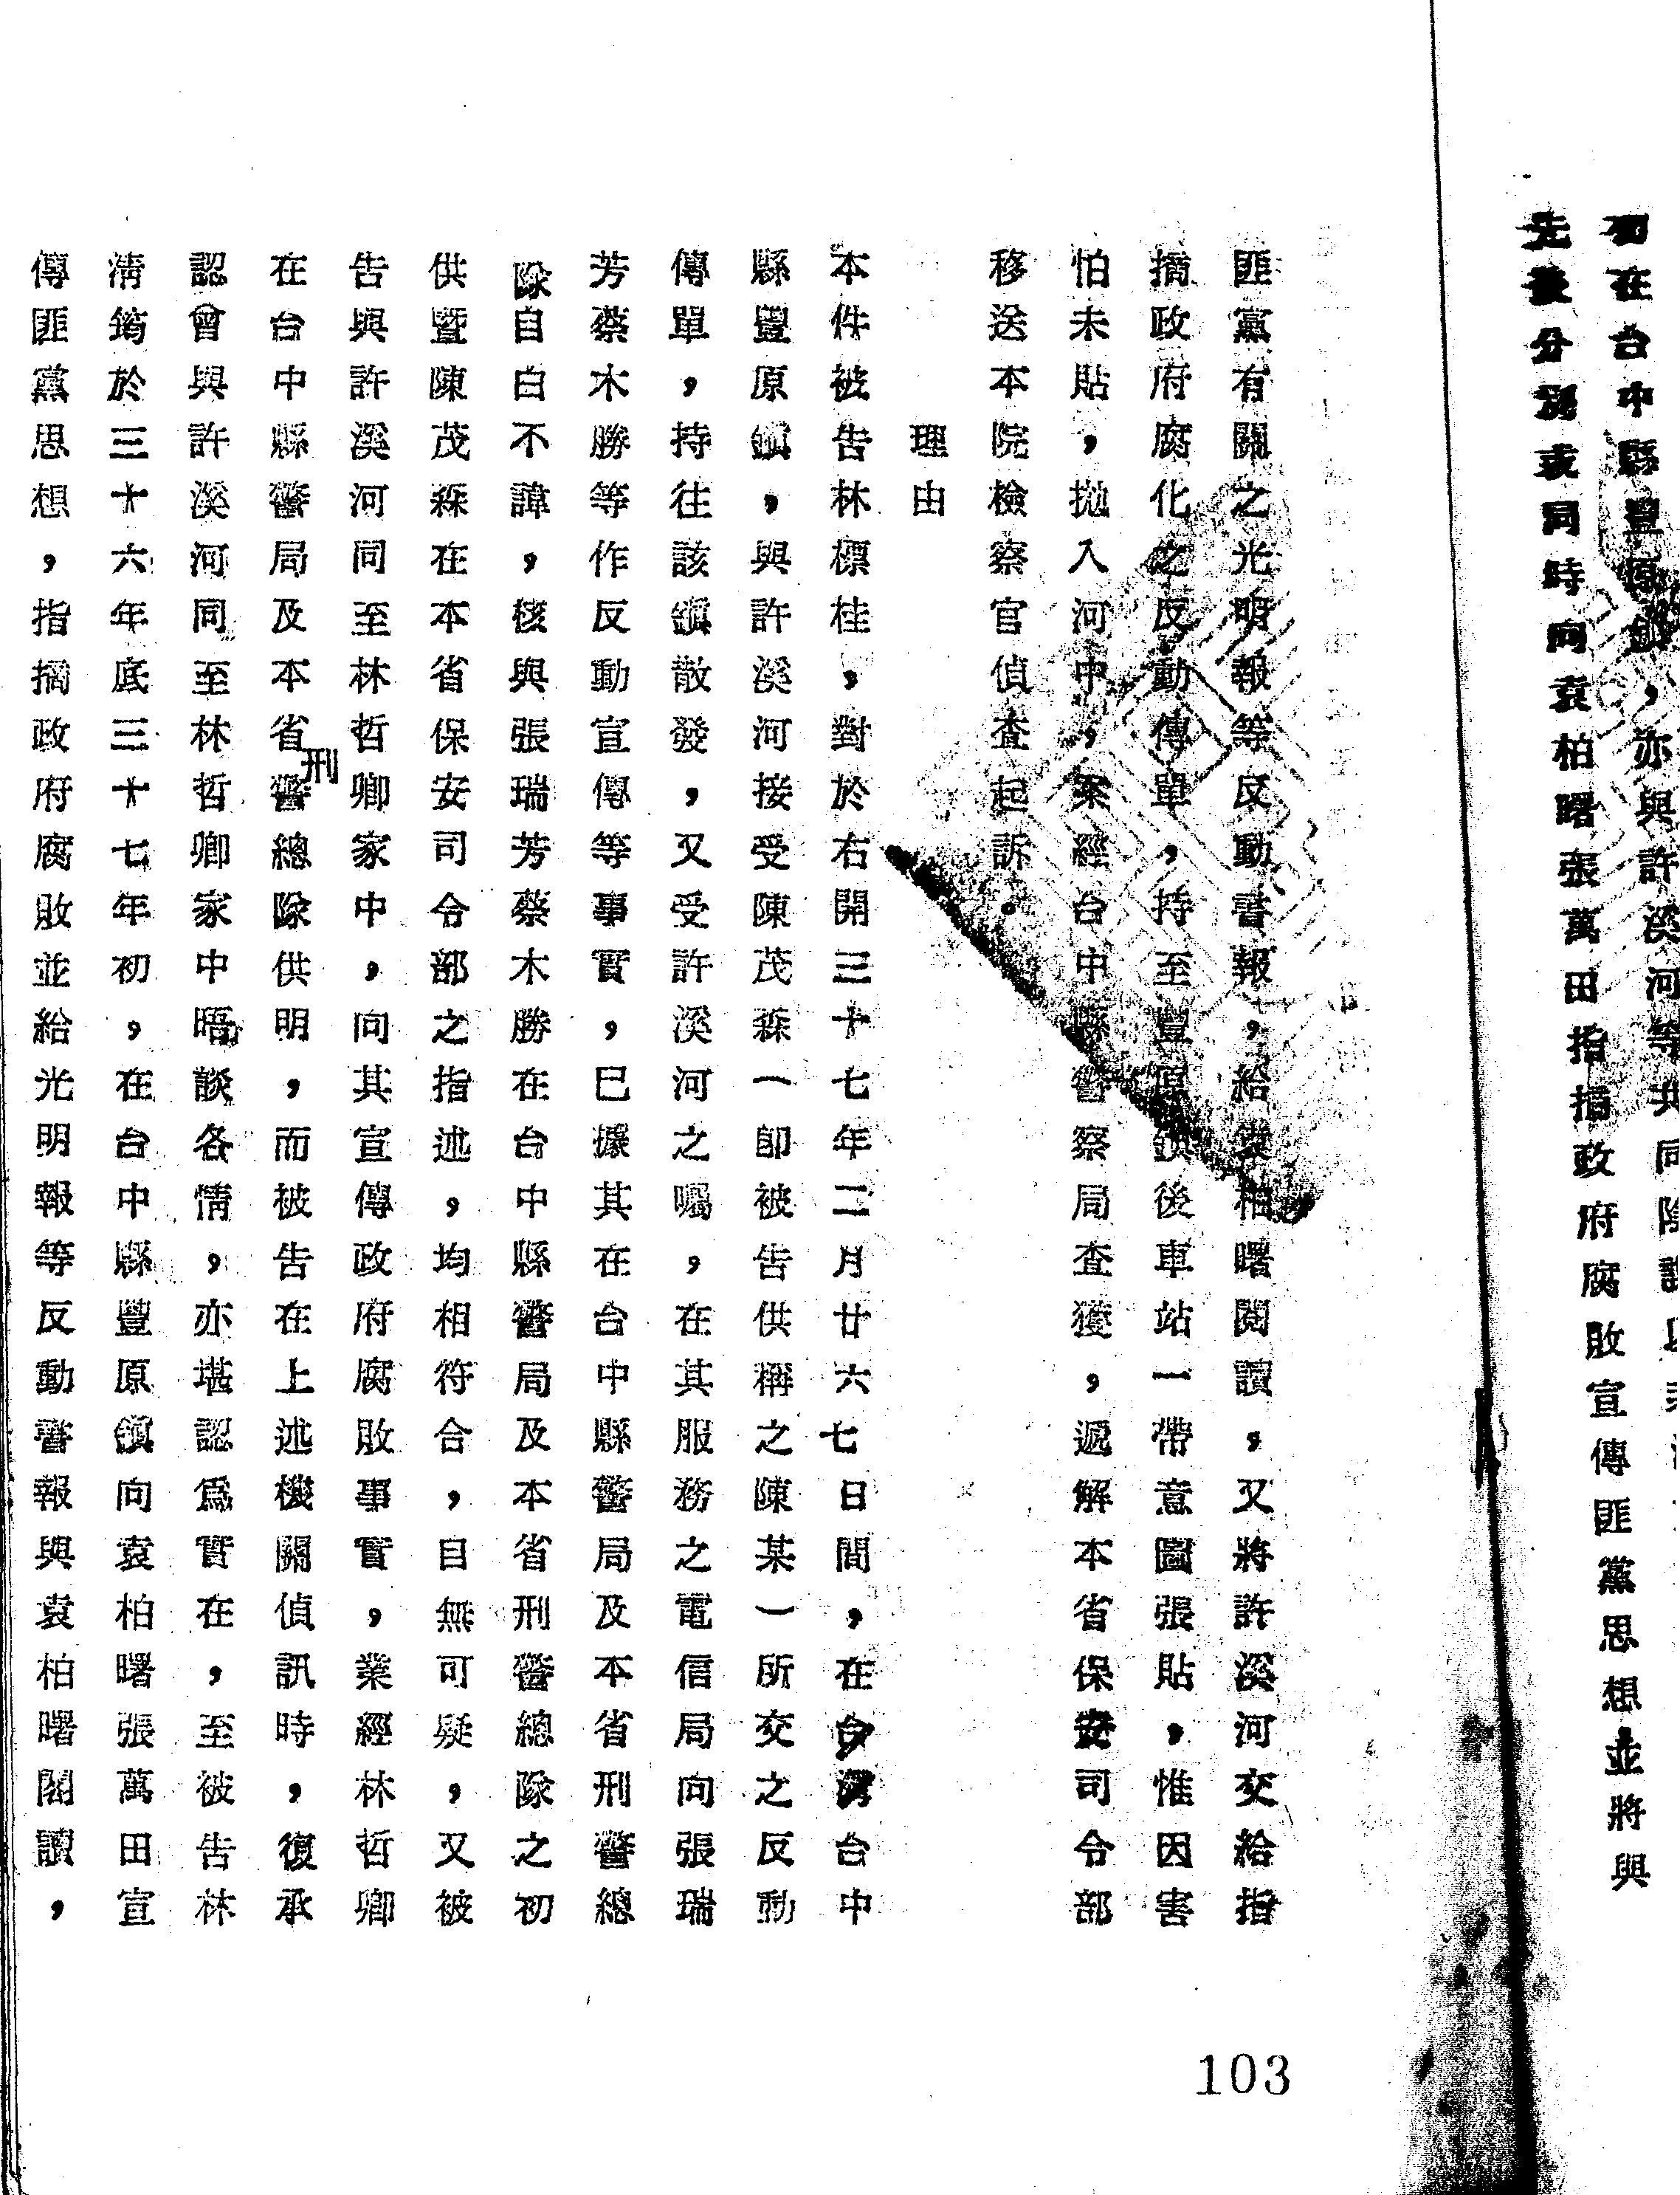 初在台中縣豐原鎮，亦與許溪河等共同
先後分別或同時向袁柏曙張萬田指摘政府腐敗宣傳匪黨思想並將與
匪黨有關之光明報等反動書報，給袁柏曙閱讀，又將許溪河交給指
摘政府腐化之反動傳單，持至豐原鎮後車站一帶意圖張貼，惟因害
怕未貼，拋入河中，案經台中縣警察局查獲，遞解本省保安司令部
移送本院檢察官偵查起訴。
理由
本件被告林標桂，對於右開三十七年二月廿六七日間，在台灣台中
縣豐原鎮，與許溪河接受陳茂森一卽被告供稱之陳某一所交之反動
傳單，持往該鎮散發，又受許溪河之囑，在其服務之電信局向張瑞
芳蔡木勝等作反動宣傳等事實，已據其在台中縣警局及本省刑警總
隊自白不諱，核與張瑞芳蔡木勝在台中縣警局及本省刑警總隊之初
供暨陳茂森在本省保安司令部之指述，均相符合，自無可疑，又被
告與許溪河同至林哲卿家中，向其宣傳政府腐敗事實，業經林哲卿
在台中縣警局及本省刑警總隊供明，而被告在上述機關偵訊時，復承
認曾與許溪河同至林哲卿家中晤談各情，亦堪認爲實在，至被告林
清筠於三十六年底三十七年初，在台中縣豐原鎮向袁柏曙張萬田宣
傳匪黨思想，指摘政府腐敗並給光明報等反動書報與袁柏曙閱讀，
103